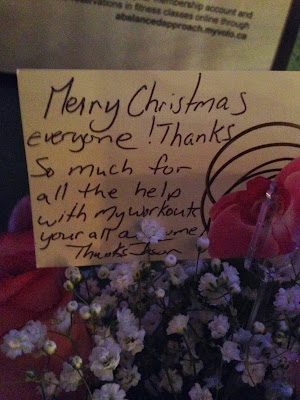 membership account and
reservations in fitness classes online through
abalancedapproach.myvolo.ca
Merry Christmas
everyone! Thanks
So much for
all the help
with my workout
your all
Thanks